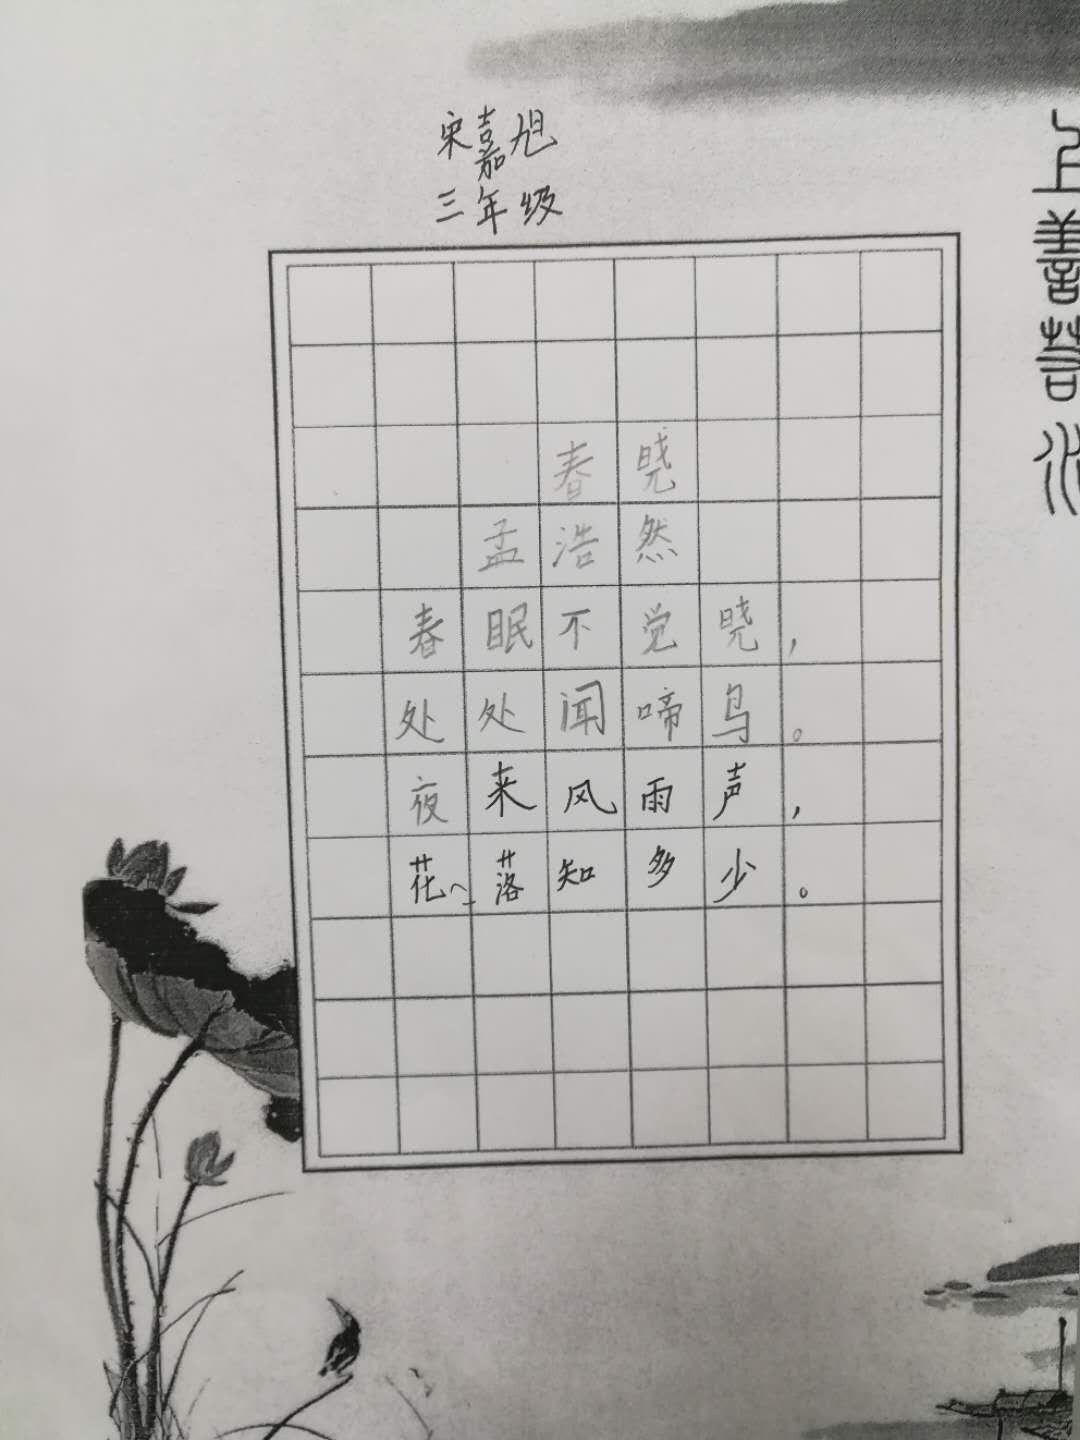 宋嘉旭
三年级
春晓
孟浩然
春眠不觉晓，
处处闻啼鸟。
夜来风雨声，
花落知多少。
上善若水